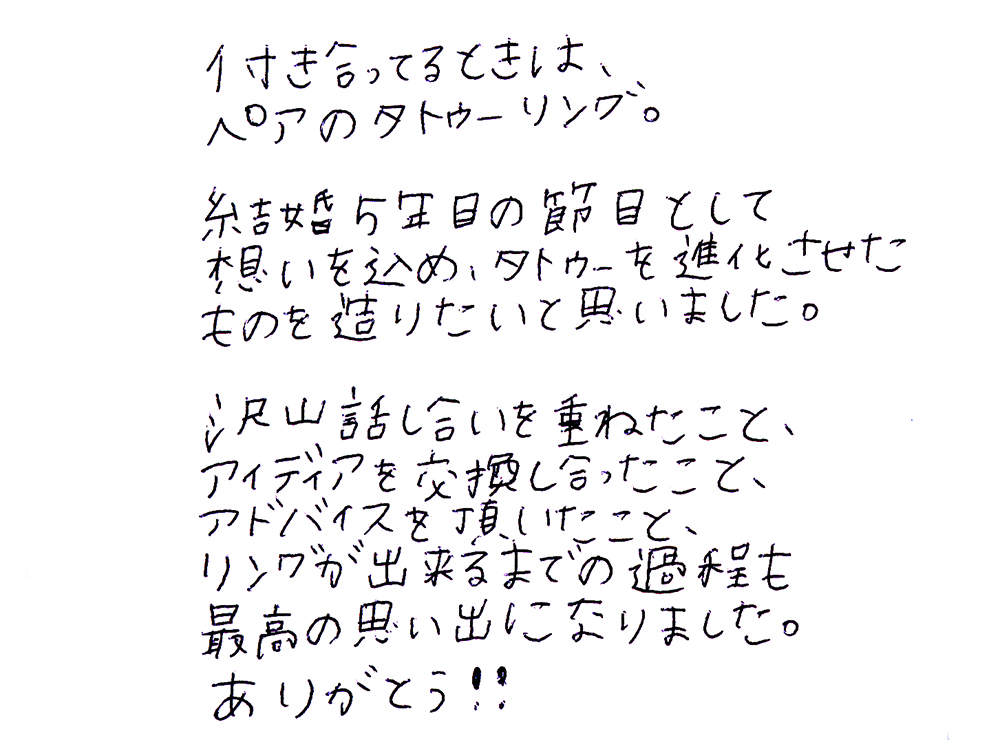 付き合ってるときは、
ペアのタトゥーリング。
結婚5年目の節目として
想いを込め、タトゥーを進化させた
ものを造りたいと思いました。
沢山話し合いを重ねたこと、
アイディアを交換し合ったこと、
アドバイスを頂いたこと、
リングが出来るまでの過程も
最高の思い出になりました。
ありがとう!!